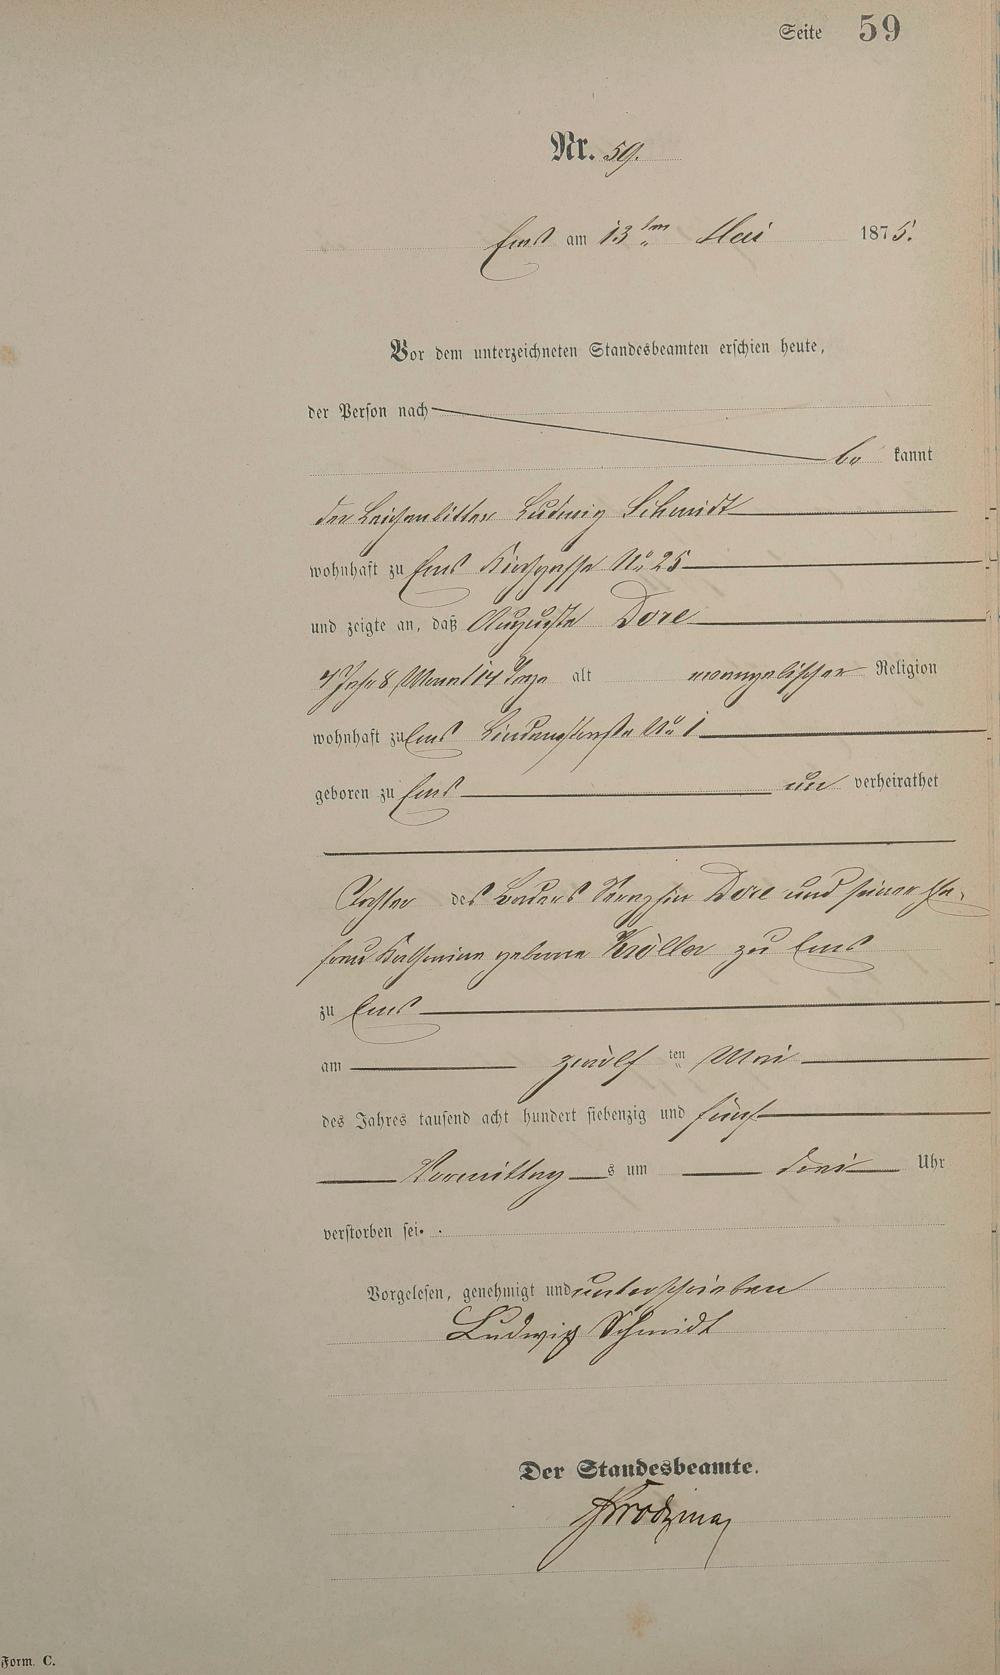 Seite 59
Nr. 59.
Ems am 13ten Mai 1875.
Vor dem unterzeichneten Standesbeamten erschien heute,
der Person nach
be kannt
der Leichenbitter Ludwig Schmidt
wohnhaft zu Ems Kirchgasse No 25
und zeigte an, daß Auguste Dore
Jahr 8 Monat 14 Tage alt evangelischer Religion
wohnhaft zu Ems No 1
geboren zu Ems un verheirathet
Tochter des Baders Dore und seiner Ehe-
frau Katharine geborne zu Ems
zu Ems
am zwölf ten Mai
des Jahres tausend acht hundert siebenzig und fünf
Vormittag s um drei Uhr
verstorben sei.
Vorgelesen, genehmigt und unterschrieben
Ludwig Schmidt
Der Standesbeamte.
Form. C.